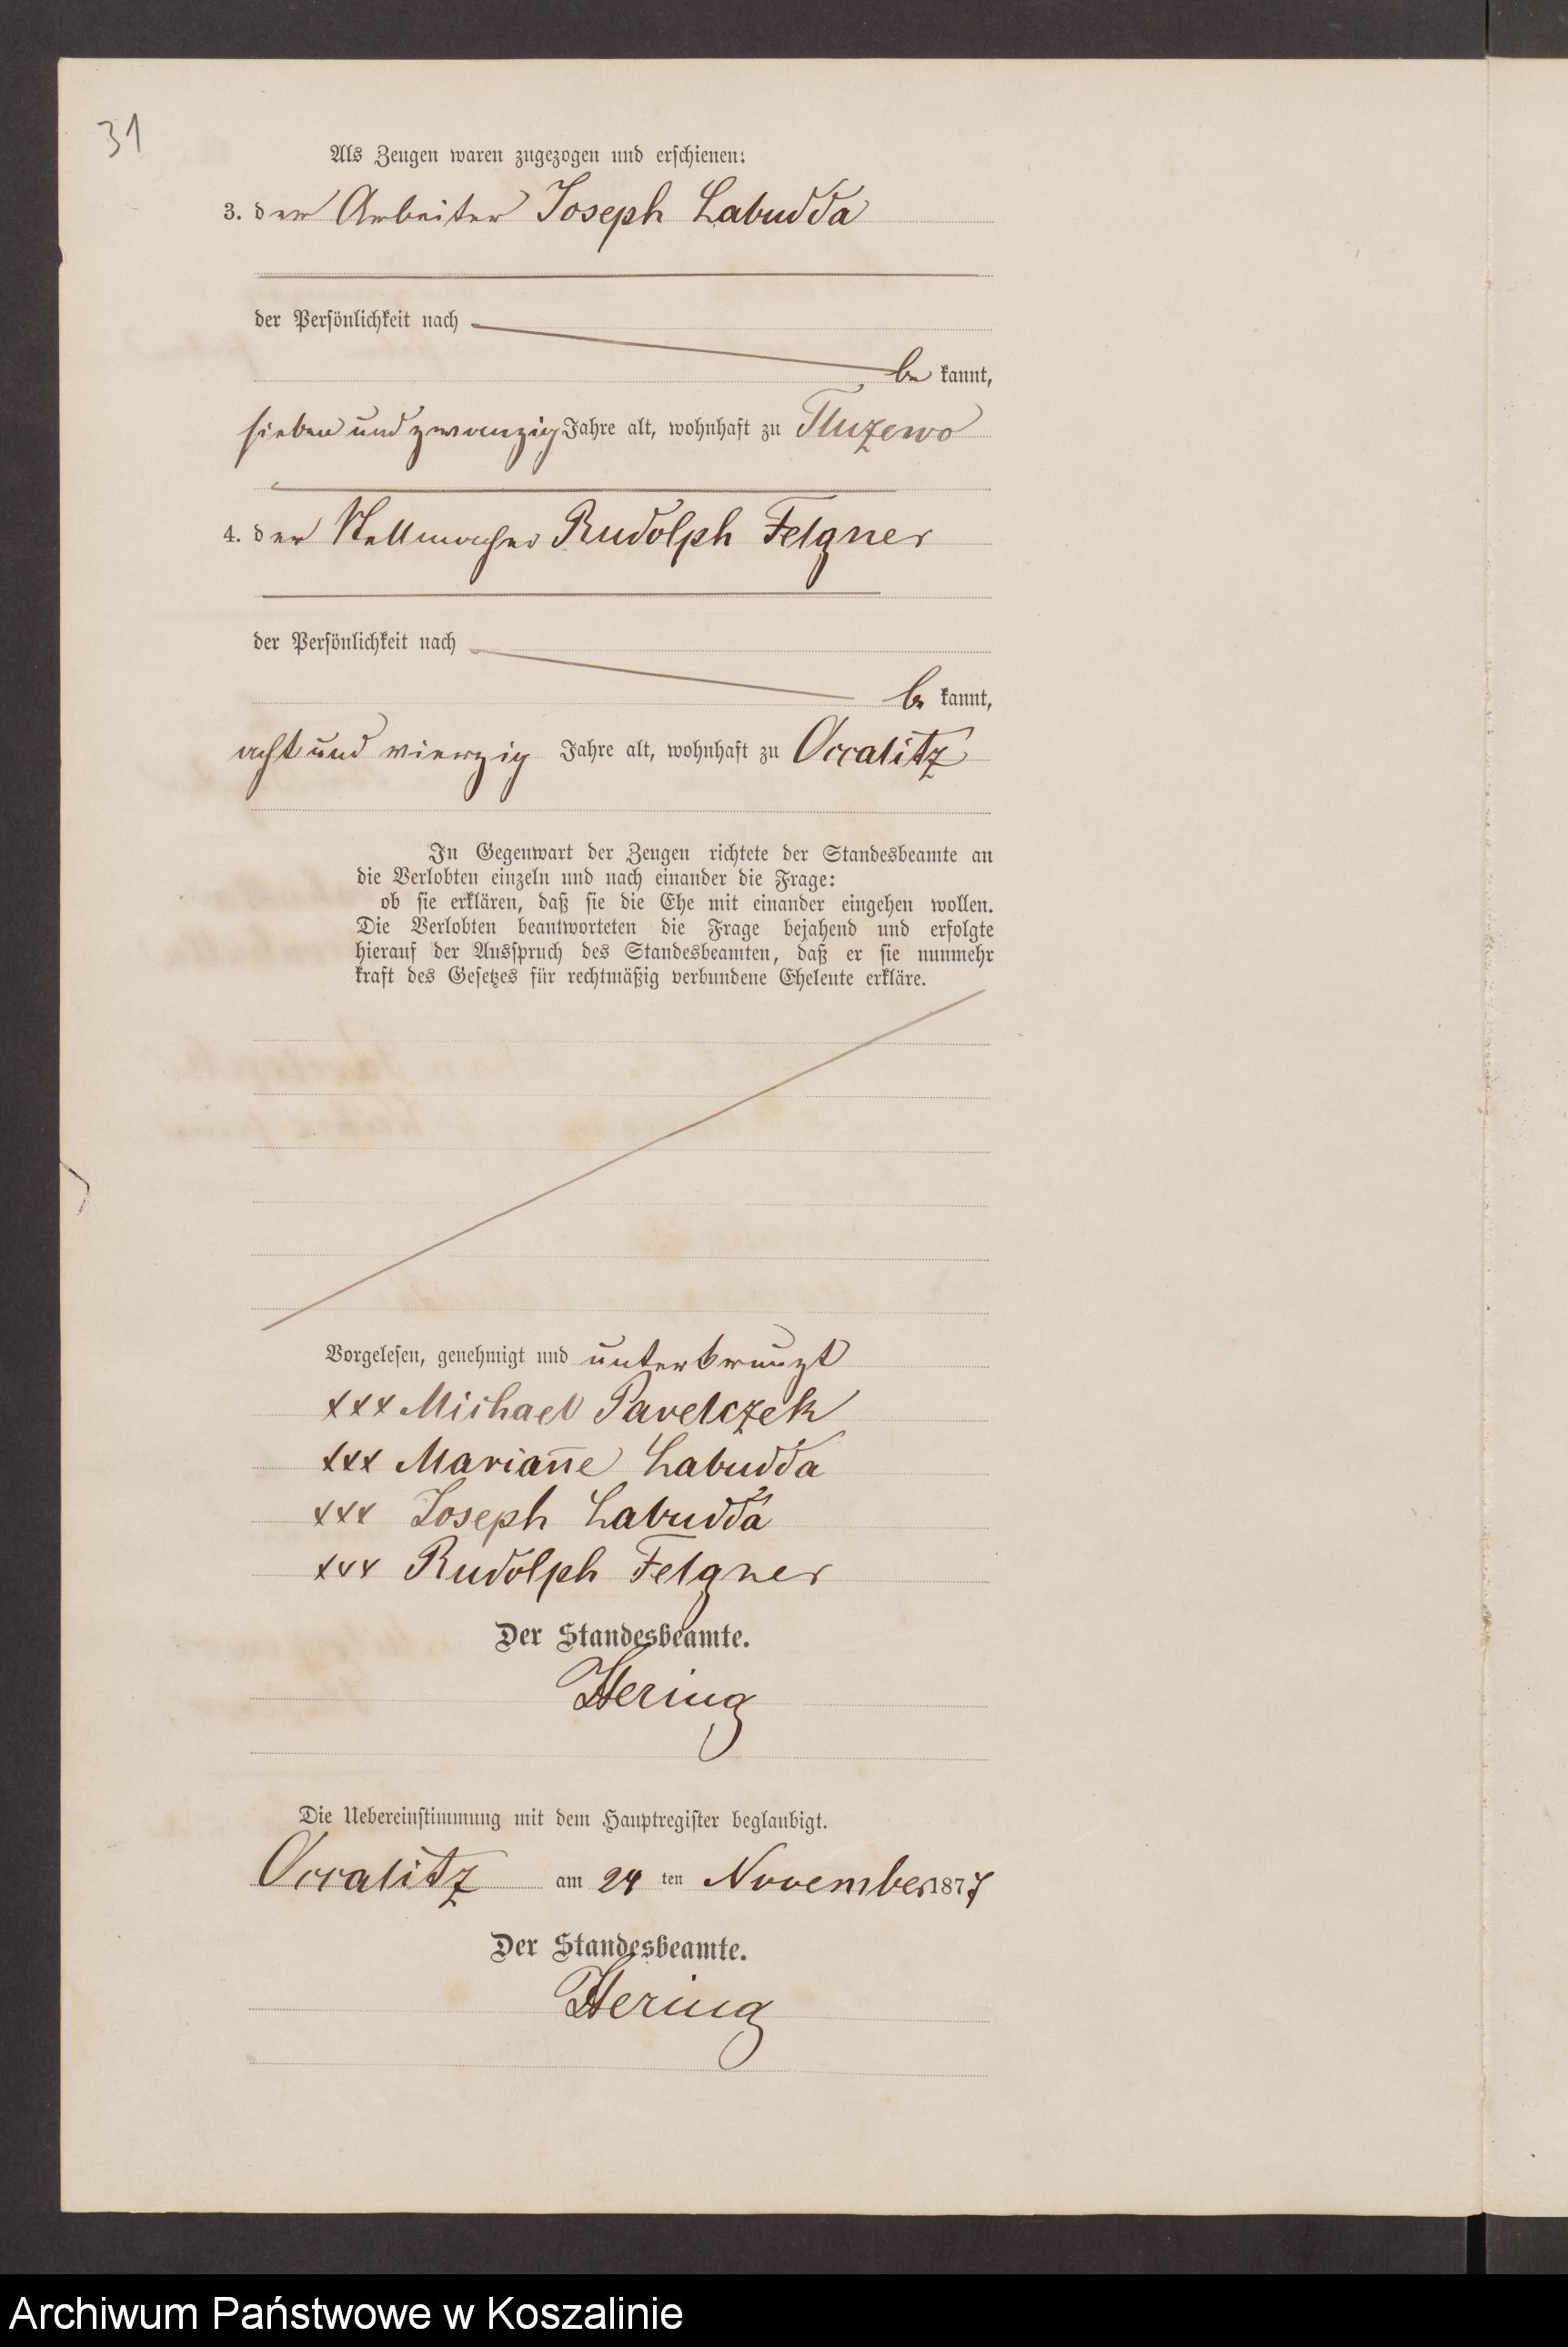 31
Als Zeugen waren zugezogen und erschienen:
3. der Arbeiter Joseph Labudda
der Persönlichkeit nach
be kannt,
sieben und zwanzig Jahre alt, wohnhaft zu Tluzewo
4. der Stellmacher Rudolph Felgner
der Persönlichkeit nach
be kannt,
acht und vierzig Jahre alt, wohnhaft zu Occalitz
In Gegenwart der Zeugen richtete der Standesbeamte an
die Verlobten einzeln und nach einander die Frage:
ob sie erklären, daß sie die Ehe mit einander eingehen wollen.
Die Verlobten beantworteten die Frage bejahend und erfolgte
hierauf der Ausspruch des Standesbeamten, daß er sie nunmehr
kraft des Gesetzes für rechtmäßig verbundene Eheleute erkläre.
Vorgelesen, genehmigt und unterkreuzt
xxx Michael Pavelczek
xxx Mariañe Labudda
xxx Joseph Labudda
xxx Rudolph Felgner
Der Standesbeamte.
Hering
Die Uebereinstimmung mit dem Hauptregister beglaubigt.
Occalitz am 24 ten November 1877
Der Standesbeamte.
Hering
Archiwum Państwowe w Koszalinie